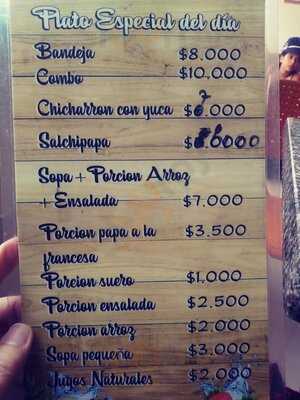 Plato Especial del día
Bandeja $8.000
Combo $10.000
Chicharron con yuca $7.000
Salchipapa $8000
Sopa + Porcion Arroz
+ Ensalada $7.000
Porcion papa a la $3.500
francesa
Porcion suero $1.000
Porcion ensalada $2.500
Porcion arroz $2.000
Sopa pequeña $3.000
Jugos Naturales $2.000